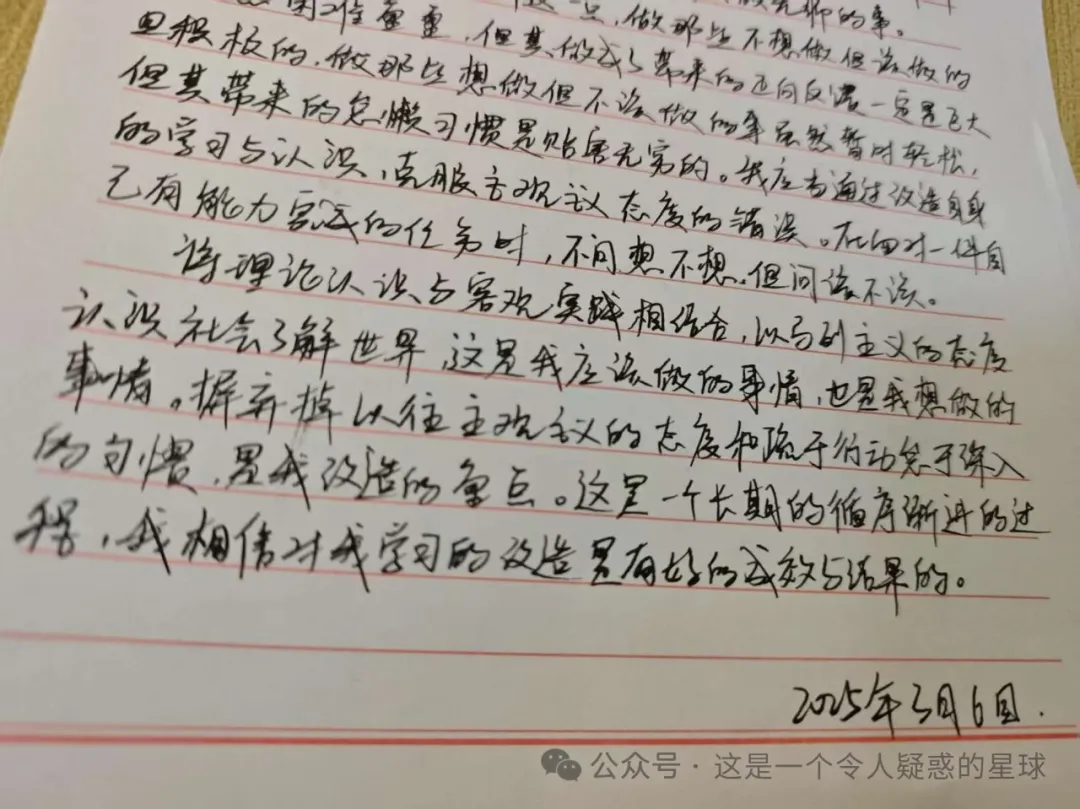 困难重重,但其做成了带来的正向反馈一定是巨大
且积极的,做那些想做但不该做的事虽然暂时轻松,
但其带来的怠懒习惯是贻害无穷的。我应当通过改造自身
的学习与认识,克服主观主义态度的错误。在面对一件自
己有能力完成的任务时,不问想不想,但问该不该。
将理论认识与客观实践相结合,以马列主义的态度
认识社会了解世界,这是我应该做的事情,也是我想做的
事情。摒弃掉以往主观主义的态度和疏于行动怠于深入
的习惯,是我改造的重点。这是一个长期的循序渐进的过
程,我相信对我学习的改造是有好的成效与结果的。
2025年3月6日.
公众号·这是一个令人疑惑的星球